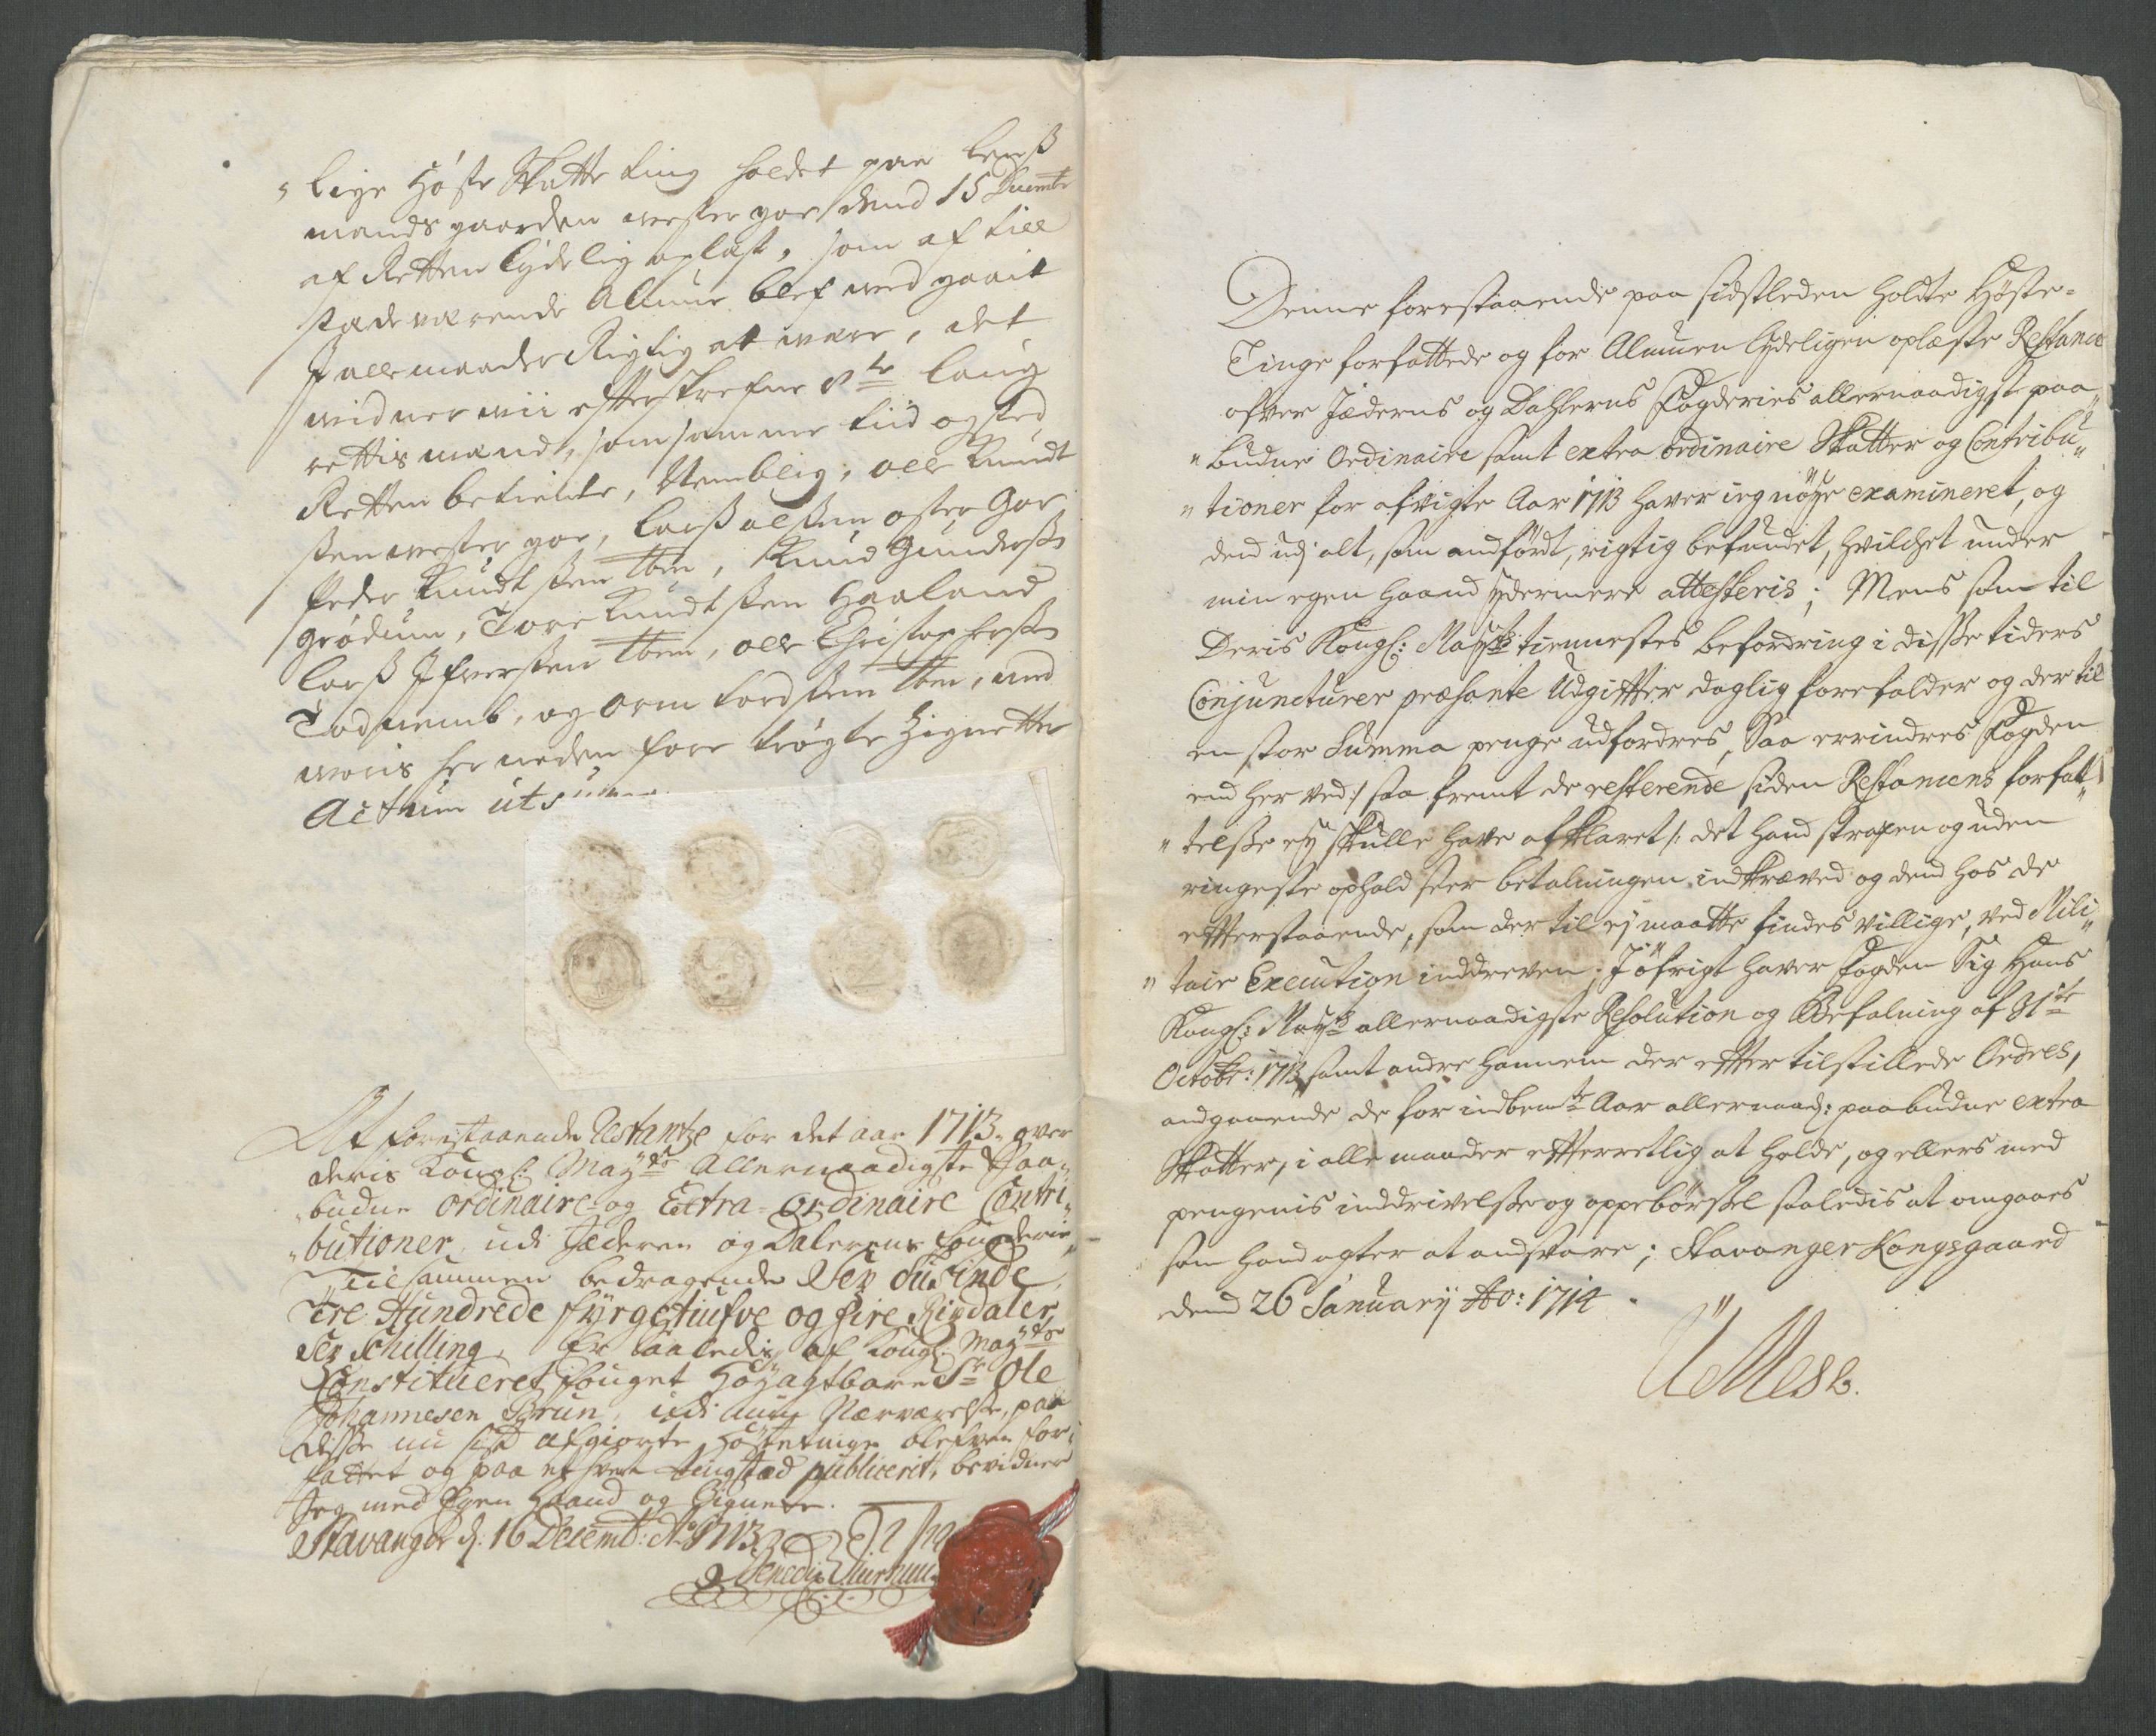 " lige Høste Skatte ting holdet paa lenß
mands gaarden westergoe dend 15 Decembr
af Retten lydelig oplæst, som af till
stædewærende Almue blef wed gaait
J alle maader Rigtig at were, det
widner wii effterskrefne 8te laug
rettis mænd, som samme tiid og sted
Retten betiente, Nemblig, olle Knudt
ßen wester goe, larß olßen øster Goe
Peder Knudtßen ibm, Knud Gunderß:
grødum, Tore Knudtßen Haaland
larß Ifwerßen ibm, olle Christopherß:
Todnemb, og Orm tordßen ibm, med
woris her neden fore trøgte Zignetter
Actum ut supra
At forestaaende Restantze for det aar 1713 over
deris Kongl: Mayts Allernaadigste Paa„
„budne ordinaire og Extra-ordinaire Contri„
„butioner, udi Jederen og Dalernes fougderie
Tilsammen bedragende Sex Tusinde,
Tre Hundrede fyrgetiufve og fire Rixdaler,
Sex Schilling, Er saaledis af Kongl: Mayts
Constitueret fouget Høyagtbare Sr Ole
Johannesen Brun, udi min Nærværelse, paa
disse nu sist afgiorte Høsteting blefven for„
fattet og paa et hvert tingstæd publicerit, bevidner
Jeg med Egen Haand og Signete.
Stavanger d: 16 Decemb: Ao 1713
Denne forestaaende paa sidstleden holdte Høste-
Tinge forfattede og for Almuen lydeligen oplæste Restance
ofver Jæderns og Dahlerns Fogderies allernaadigste paa„
„budne Ordinaire samt extra ordinaire Skatter og Contribu„
„tioner for afvigte Aar 1713 haver ieg nøye examineret, og
dend udj alt, som andført, rigtig befundet, hvilchet under
min egen Haand ydermere attesteris; Mens som til
Deris Kongl: Mayts tiennestes befordring i disse tiders
Conjuncturer præsante Udgiffter daglig forefalder og der til
en stor Summa penge udfordres, Saa errindres Fogden
end her ved /: saa fremt de resterende siden Restancens forfat„
„telße ey skulle have afklaret :/ det hand straxen og uden
ringeste ophold seer betalningen indkræved og dend hos de
efterstaaende, som der til ej maatte findes villige, ved Mili„
„tair Execution inddreven; J øfrigt haver Fogden Sig Hans
Kongl: Mayts allernaadigste Resolution og Befalning af 31te
Octobr: 1713 samt andre hannem der effter tilstillede Ordres,
andgaaende de for indbemte Aar allernaad: paabudne extra
Skatter, i alle maader efterretlig at holde, og ellers med
pengenis inddrivelse og oppebørsel saaledis at omgaaes
som hand agter at andsvare; Stavanger Kongsgaard
dend 26 January Ao: 1714.